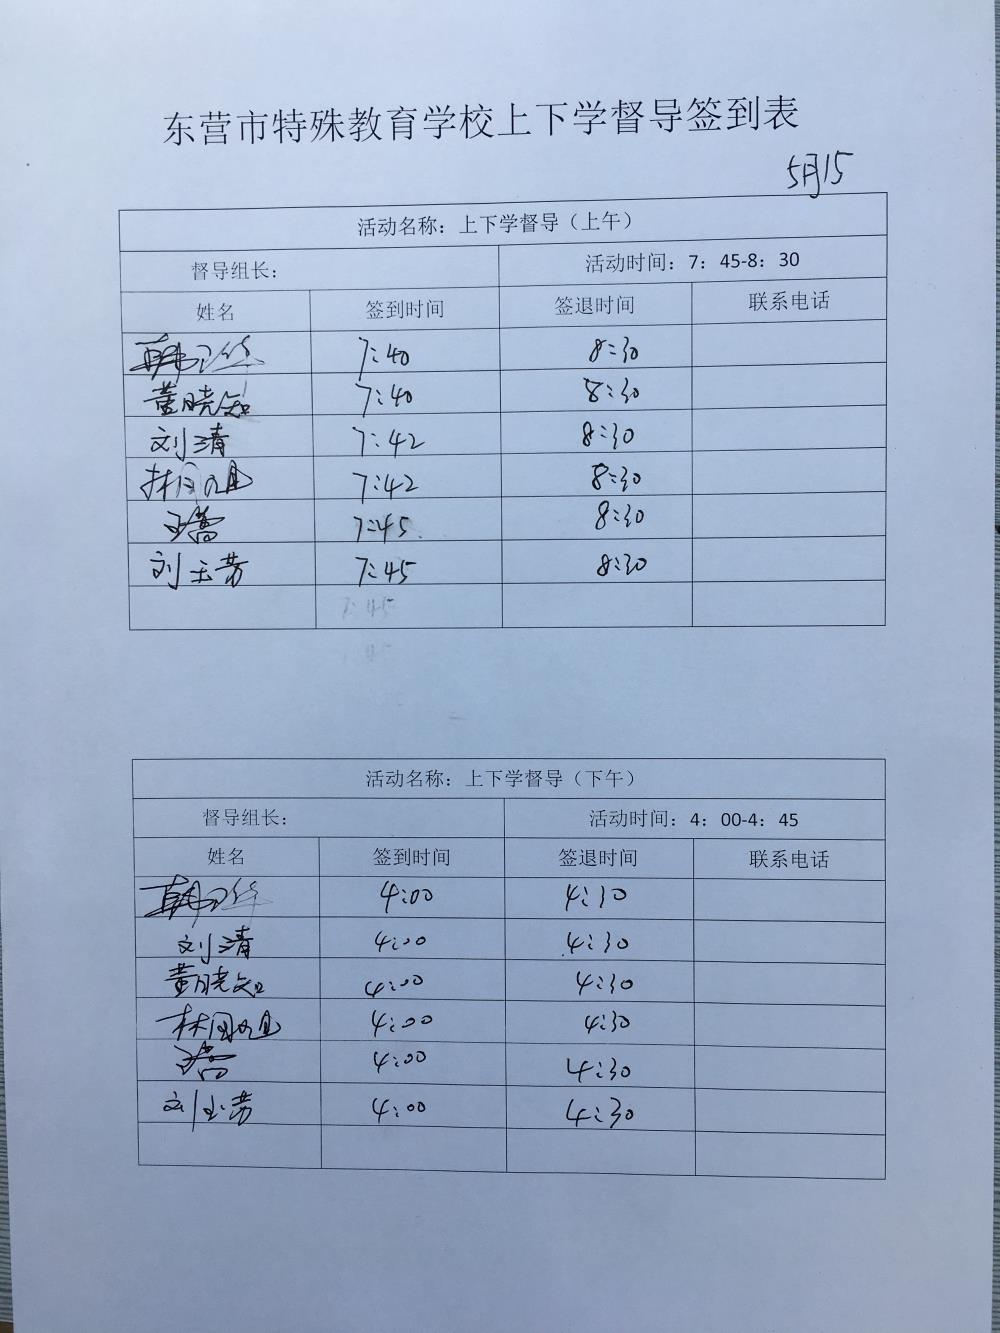 东营市特殊教育学校上下学督导签到表
5月15
活动名称：上下学督导（上午）
督导组长： 活动时间：7：45-8：30
姓名 签到时间 签退时间 联系电话
7:40 8:30
董晓知 7:40 8:30
刘清 7:42 8:30
7:42 8:30
7:45 8:30
刘玉芳 7:45 8:30
7:45
活动名称：上下学督导（下午）
督导组长： 活动时间：4：00-4：45
姓名 签到时间 签退时间 联系电话
4:00 4:30
刘清 4:00 4:30
董晓知 4:00 4:30
4:00 4:30
4:00 4:30
刘玉芳 4:00 4:30